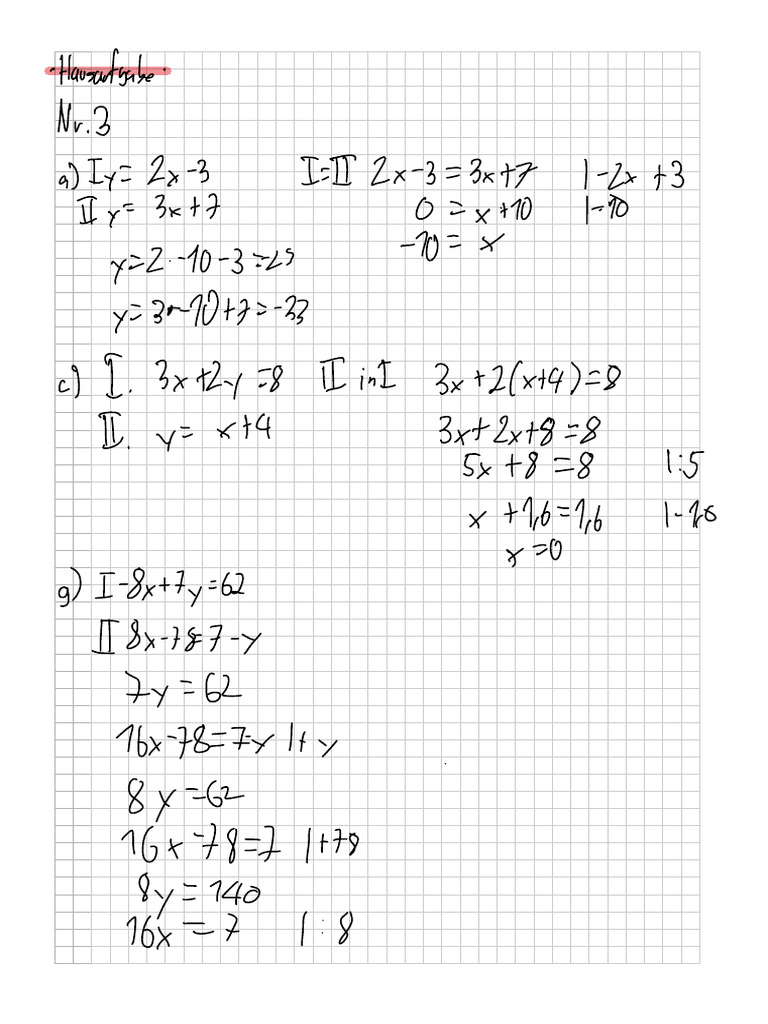 Hausaufgabe
Nr. 3
a) I y = 2x - 3 I=II 2x - 3 = 3x + 7 | -2x + 3
II y = 3x + 7 0 = x + 10 | -10
-10 = x
y = 2 · -10 - 3 = 25
y = 3 · -10 + 7 = -33
c) I. 3x + 2y = 8 II in I 3x + 2(x+4) = 8
II. y = x + 4 3x + 2x + 8 = 8
5x + 8 = 8 | :5
x + 1,6 = 1,6 | - 1,6
x = 0
g) I -8x + 7y = 62
II 8x - 78 = 7 - y
7y = 62
16x - 78 = 7 - y | + y
8y = 62
16x - 78 = 7 | +78
8y = 140
16x = 7 | : 8